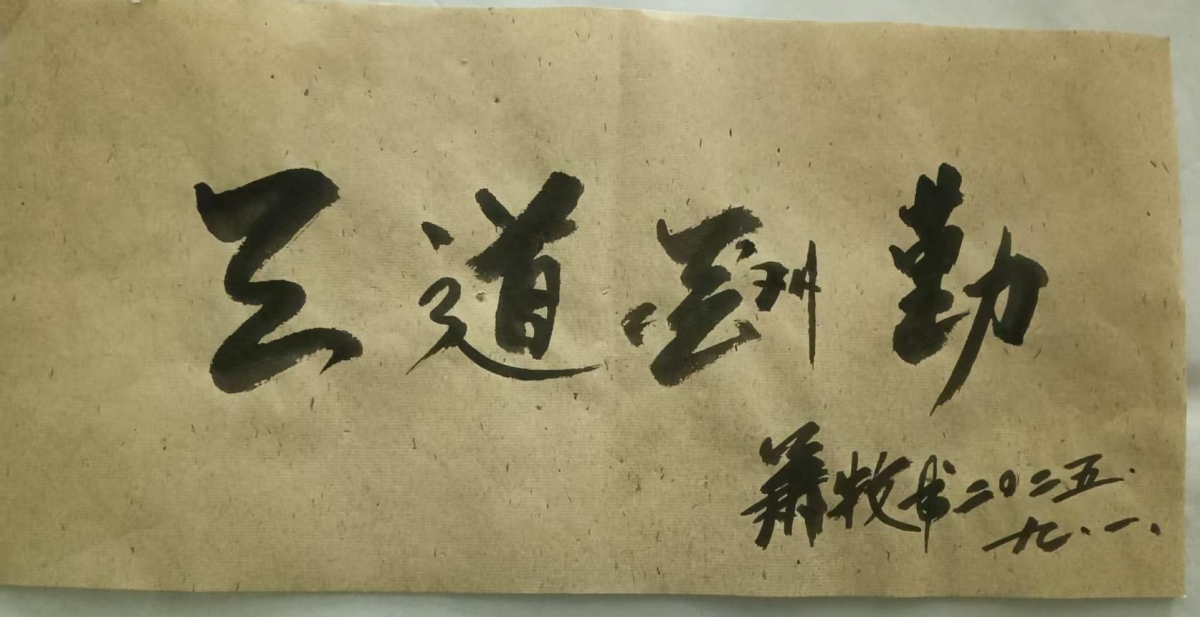 天道酬勤
萧牧书二〇二五.
九.一.